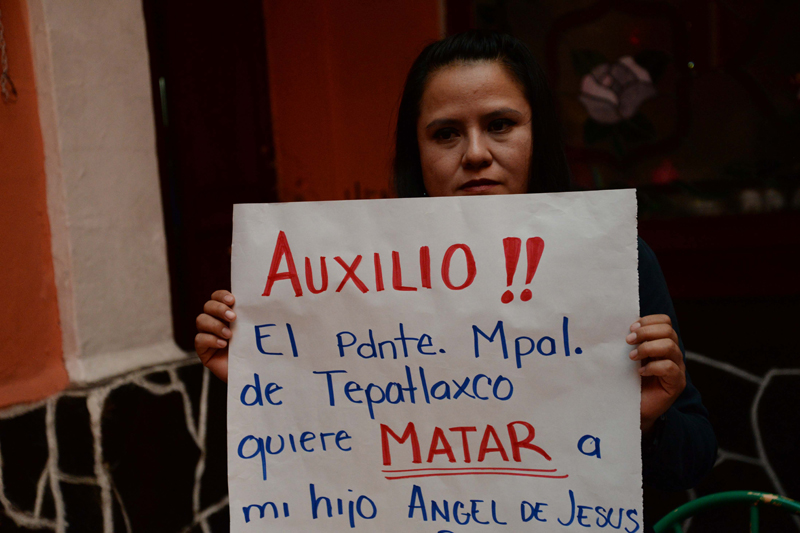 AUXILIO !!
El Pdnte. Mpal.
de Tepatlaxco
quiere MATAR a
mi hijo ANGEL DE JESUS